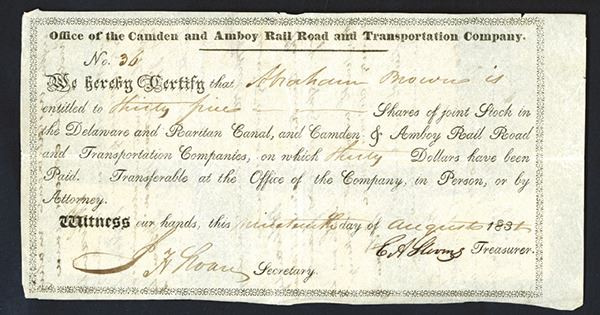 Office of the Camden and Amboy Rail Road and Transportation Company.
No. 36
We hereby Certify that Abraham Browne is
entitled to thirty five Shares of joint Stock in
the Delaware and Raritan Canal, and Camden & Amboy Rail Road
and Transportation Companies, on which thirty Dollars have been
Paid. Transferable at the Office of the Company, in Person, or by
Attorney.
Witness our hands, this nineteenth day of August 183
Treasurer.
Secretary.